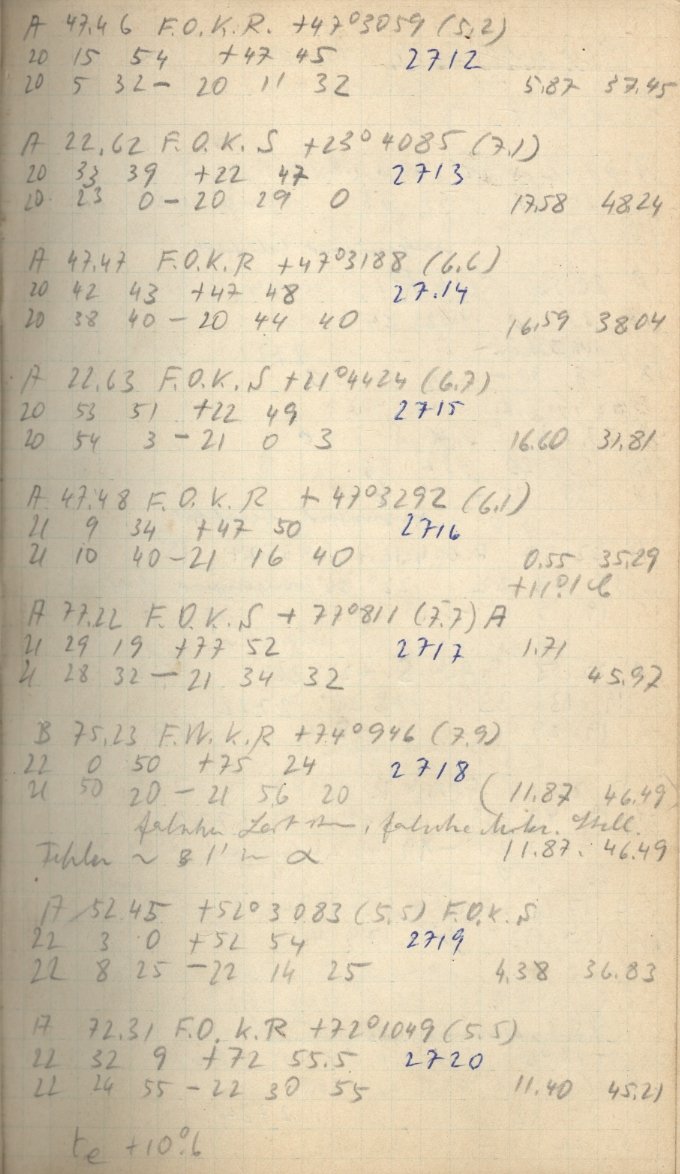 A 47.46 F.O.K.R. +47°3059 (5.2)
20 15 54 +47 45 2712
20 5 32 – 20 11 32 5.87 37.45
A 22.62 F.O.K.S +23°4085 (7.1)
20 33 39 +22 47 2713
20 23 0 – 20 29 0 17.58 48.24
A 47.47 F.O.K.R +47°3188 (6.6)
20 42 43 +47 48 2714
20 38 40 – 20 44 40 16.59 38.04
A 22.63 F.O.K.S +21°4424 (6.7)
20 53 51 +22 49 2715
20 54 3 – 21 0 3 16.60 31.81
A 47.48 F.O.K.R +47°3292 (6.1)
21 9 34 +47 50 2716
21 10 40 – 21 16 40 0.55 35.29
+11°.1
A 77.22 F.O.K.S +77°811 (7.7) A
21 29 19 +77 52 2717 1.71
21 28 32 – 21 34 32 45.97
B 75.23 F.W.K.R +74°946 (7.9)
22 0 50 +75 24 2718
21 50 20 – 21 56 20 (11.87 46.49)
falscher, falsche
Fehler ~ 1' in α 11.87. 46.49
A 52.45 +52°3083 (5.5) F.O.K.S
22 3 0 +52 54 2719
22 8 25 – 22 14 25 4.38 36.83
A 72.31 F.O.K.R +72°1049 (5.5)
22 32 9 +72 55.5 2720
22 24 55 – 22 30 55 11.40 45.21
te +10°.6